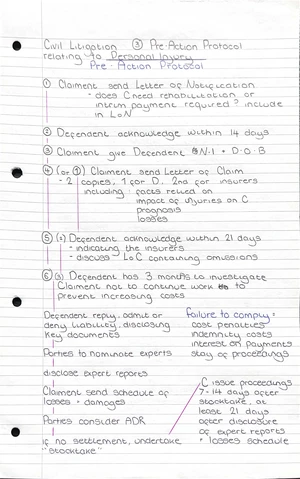 Civil Litigation ③ Pre-Action Protocol
relating to Personal Injury
Pre-Action Protocol
① Claimant send Letter of Notification
- does C need rehabilitation or
interim payment required? include
in LoN
② Defendent acknowledge within 14 days
③ Claimant give Defendent N-I + D.O.B
④ (or ①) Claimant send Letter of Claim
- 2 copies, 1 for D, 2nd for insurers
including: facts relied on
impact of injuries on C
prognosis
losses
⑤ (2) Defendent acknowledge within 21 days
- indicating the insurers
- discuss LoC containing omissions
⑥ (3) Defendent has 3 months to investigate
Claimant not to continue work to
prevent increasing costs
Defendent reply, admit or
deny liability, disclosing
key documents
Parties to nominate experts
disclose expert reports
Claimant send schedule of
losses + damages
Parties consider ADR
if no settlement, undertake
"stocktake"
Failure to comply:
cost penalties
indemnity costs
interest on payments
stay of proceedings
C issue proceedings
7-14 days after
stocktake, at
least 21 days
after disclosure
of expert reports
+ losses schedule